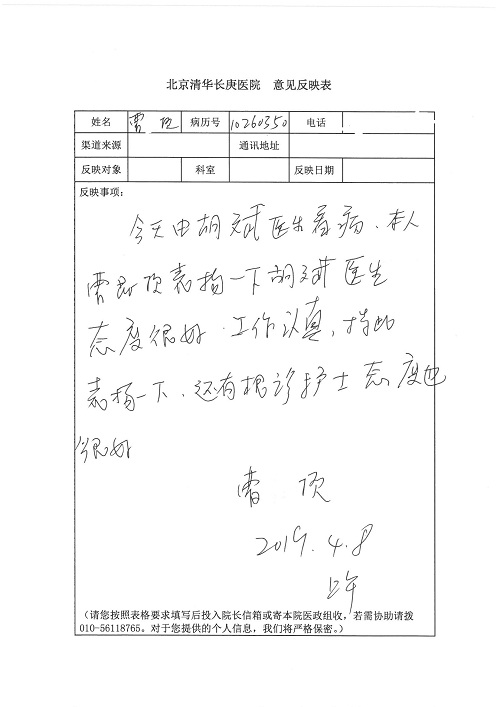 北京清华长庚医院 意见反映表
姓名 曹 病历号 10260350 电话
渠道来源 通讯地址
反映对象 科室 反映日期
反映事项：
今天由胡斌医生看病、本人
曹 项表扬一下胡斌医生
态度很好 . 工作认真, 特此
表扬一下、还有 诊护士态度也
很好
曹 项
2019.4.8
上午
(请您按照表格要求填写后投入院长信箱或寄本院医政组收，若需协助请拨
010-56118765。对于您提供的个人信息，我们将严格保密。)